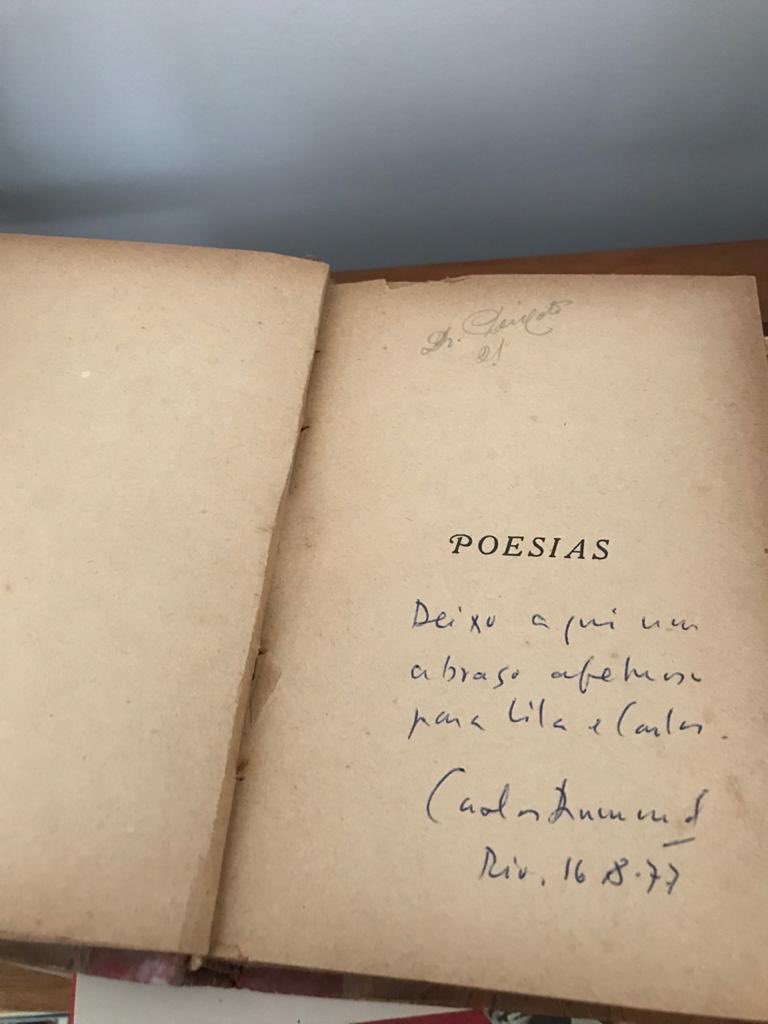 Dr.
21
POESIAS
Deixo aqui um
abraço afetuoso
para Lila e Carlos.
Carlos Drummond
Rio, 16.8.77